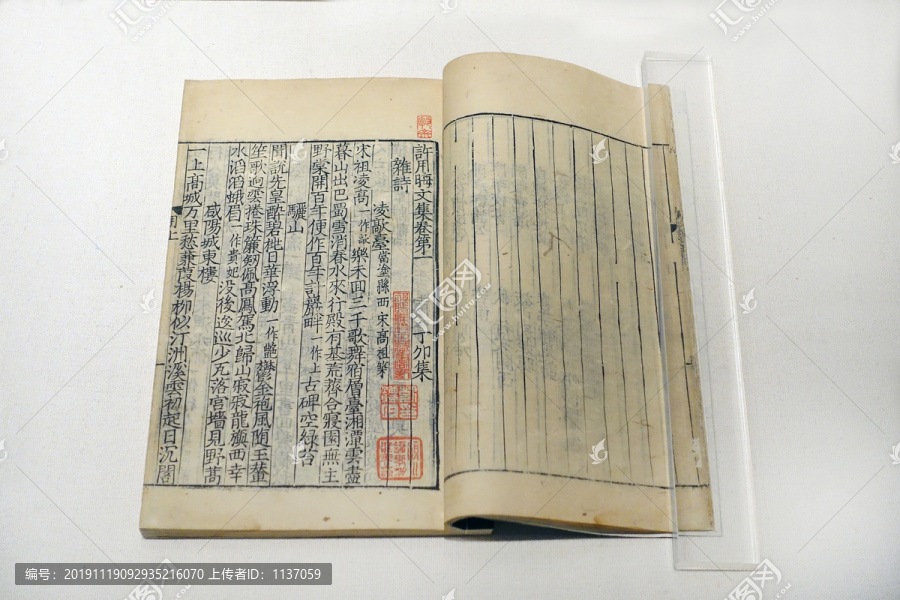 許用晦文集卷第一 丁卯集
雜詩
凌歊臺當塗縣西宋高祖築
宋祖凌高一作歊樂未回三千歌舞宿層臺湘潭雲盡
暮山出巴蜀雪消春水來行殿有基荒薺合寢園無主
野棠開百年便作百年計巖畔一作上古碑空綠苔
驪山
聞說先皇醉碧桃日華浮動一作艷鬱金袍風隨玉輦
笙歌迥雲捲珠簾劒佩高鳳駕北歸山寂寂龍旗西幸
水滔滔蛾眉一作貴妃没後巡少瓦落宮墻見野蒿
咸陽城東樓
一上高城万里愁蒹葭楊柳似汀洲溪雲初起日沉閣
用上
编号：20191119092935216070 上传者ID：1137059